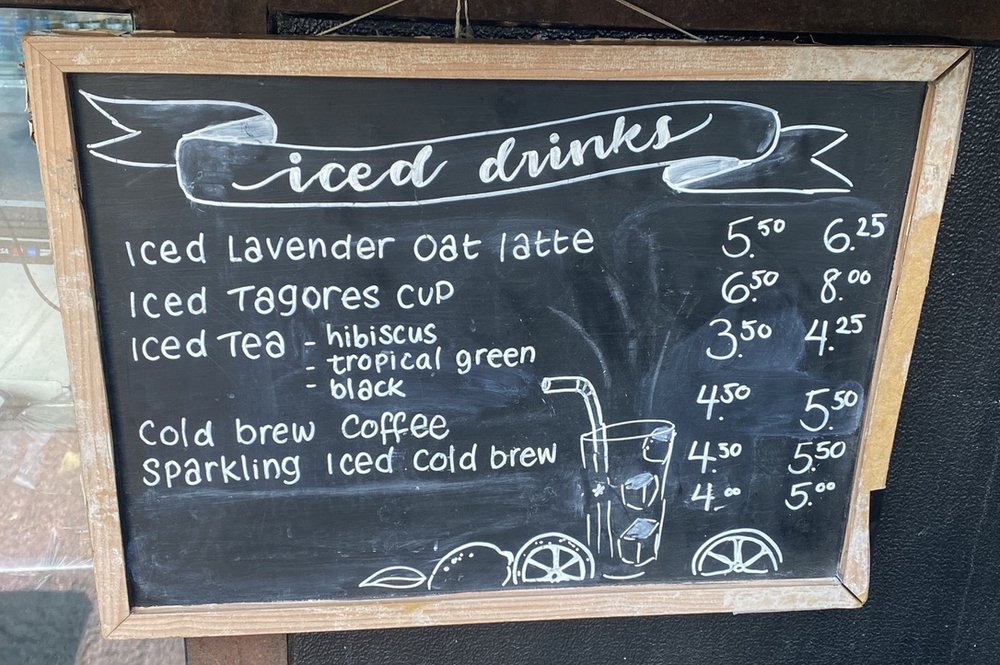 iced drinks
Iced Lavender Oat latte 5.50 6.25
Iced Tagores Cup 6.50 8.00
Iced Tea - hibiscus 3.50 4.25
- tropical green
- black 4.50 5.50
Cold brew Coffee 4.50 5.50
Sparkling Iced Cold brew 4.00 5.00